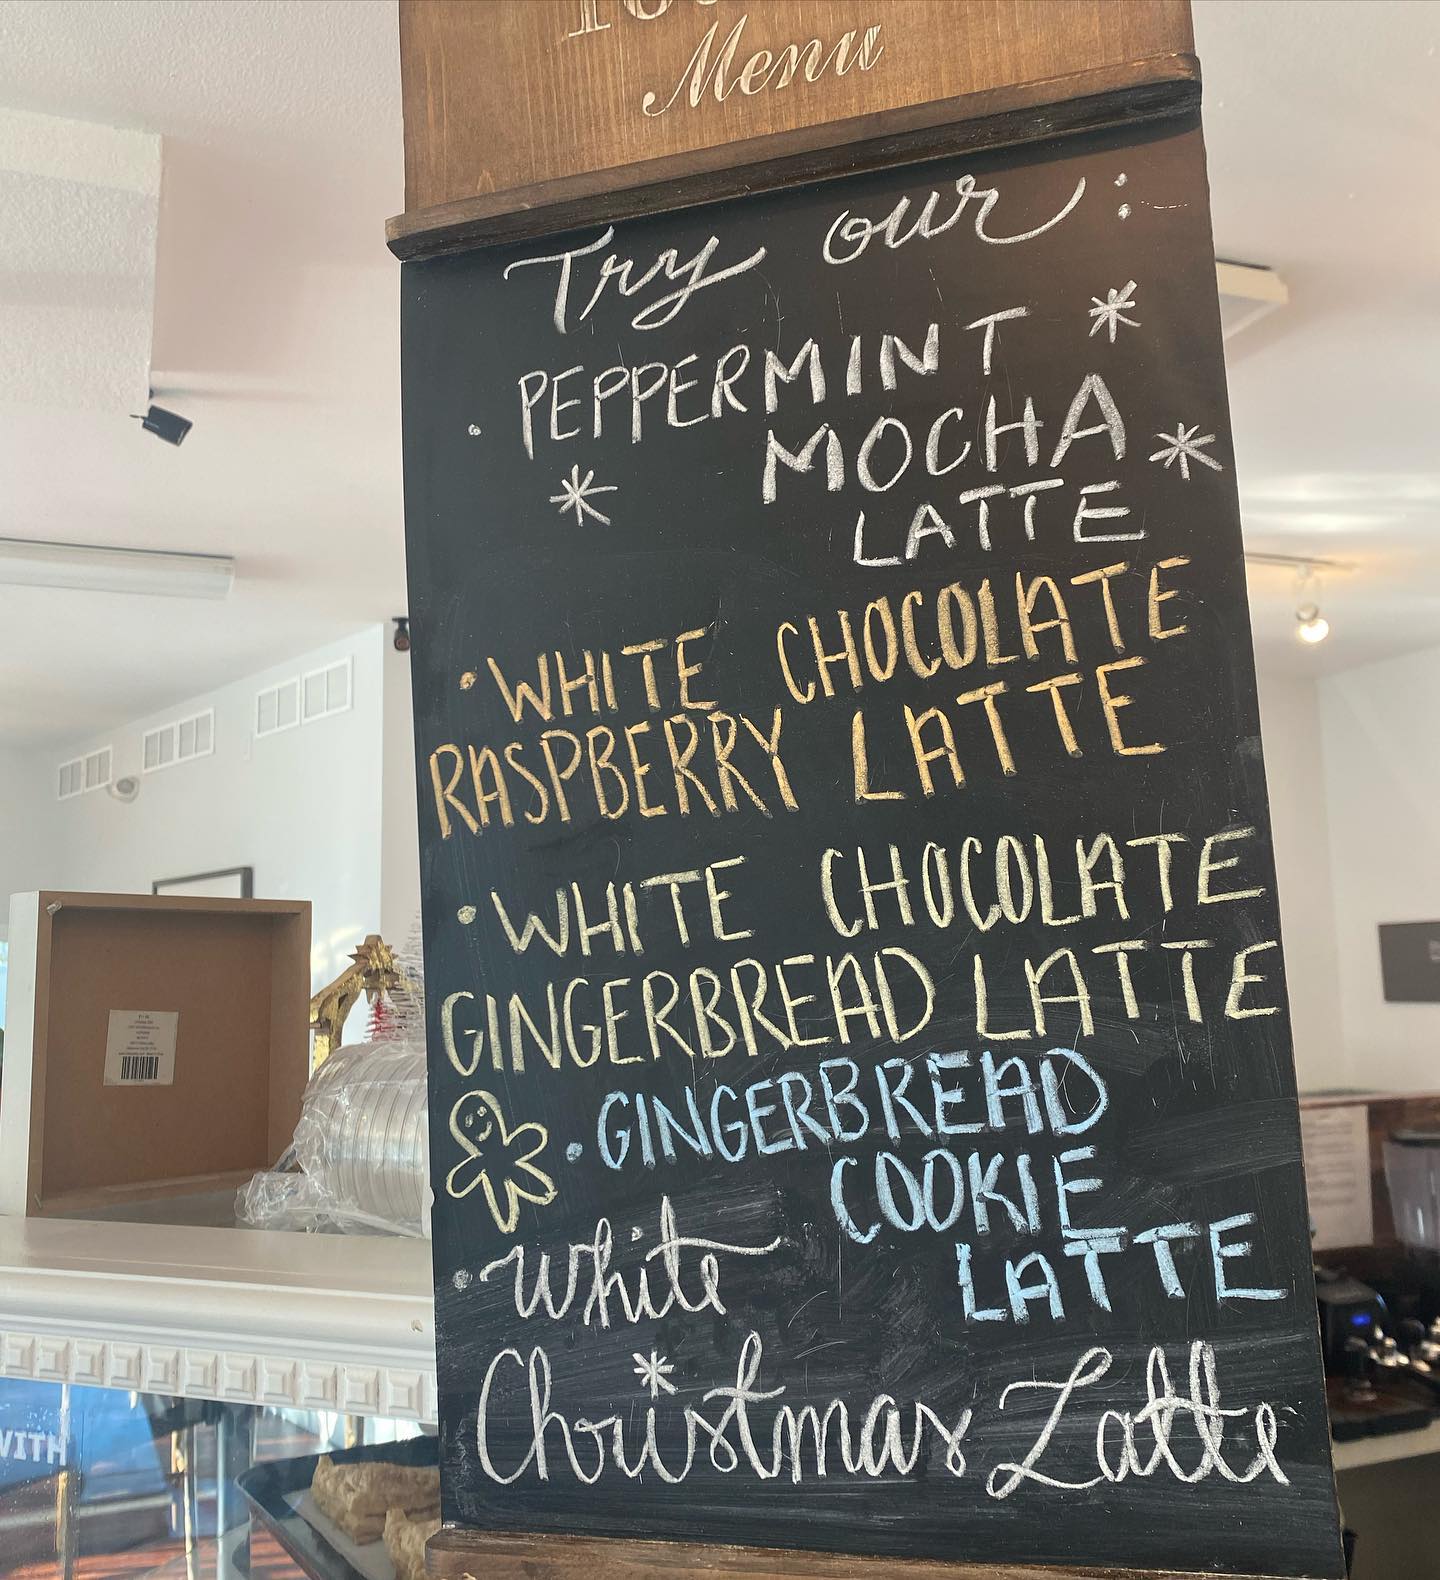 Menu
Try our:
· PEPPERMINT
MOCHA
LATTE
· WHITE CHOCOLATE
RASPBERRY LATTE
· WHITE CHOCOLATE
GINGERBREAD LATTE
· GINGERBREAD
COOKIE
LATTE
· White
Christmas Latte
WITH